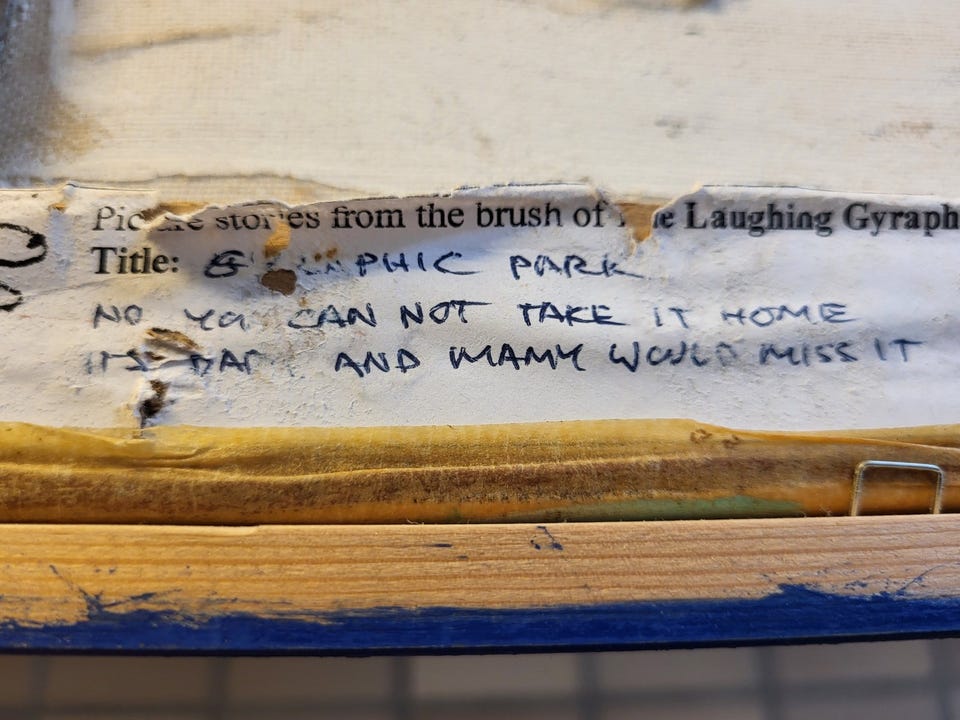 stories from the brush of Laughing Gyraph
Title: PARK
NO CAN NOT TAKE IT HOME
AND MAMY WOULD MISS IT